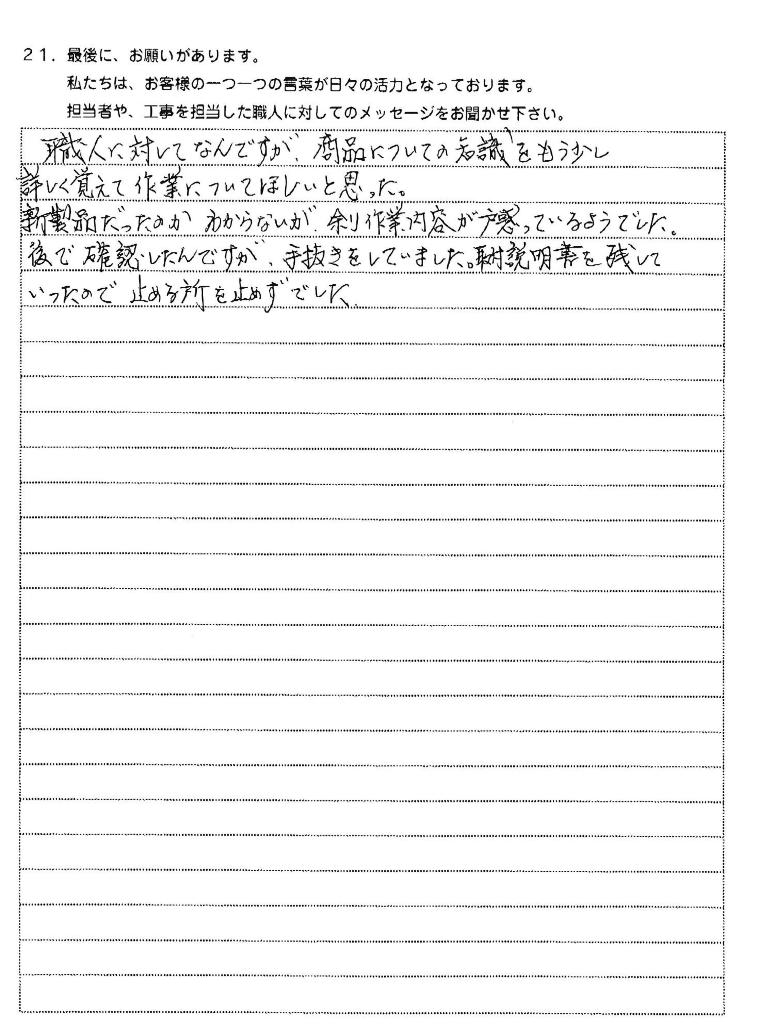 21. 最後に、お願いがあります。
私たちは、お客様の一つ一つの言葉が日々の活力となっております。
担当者や、工事を担当した職人に対してのメッセージをお聞かせ下さい。
職人に対してなんですが、商品についての知識をもう少し
詳しく覚えて作業についてほしいと思った。
新製品だったのか わからないが、余り作業内容が戸惑っているようでした。
後で確認したんですが、手抜きをしていました。取付説明書を残して
いったので 止める所を止めずでした